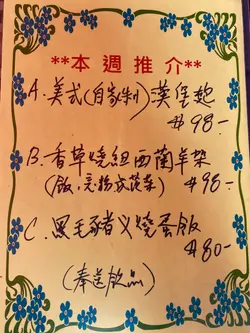 **本週推介**
A. 美式(自家制)漢堡飽
$98-
B. 香草燒紐西蘭羊架
(飯,意粉或茨菜) $98-
C. 黑毛豬义燒蛋飯
$80-
(奉送飲品)